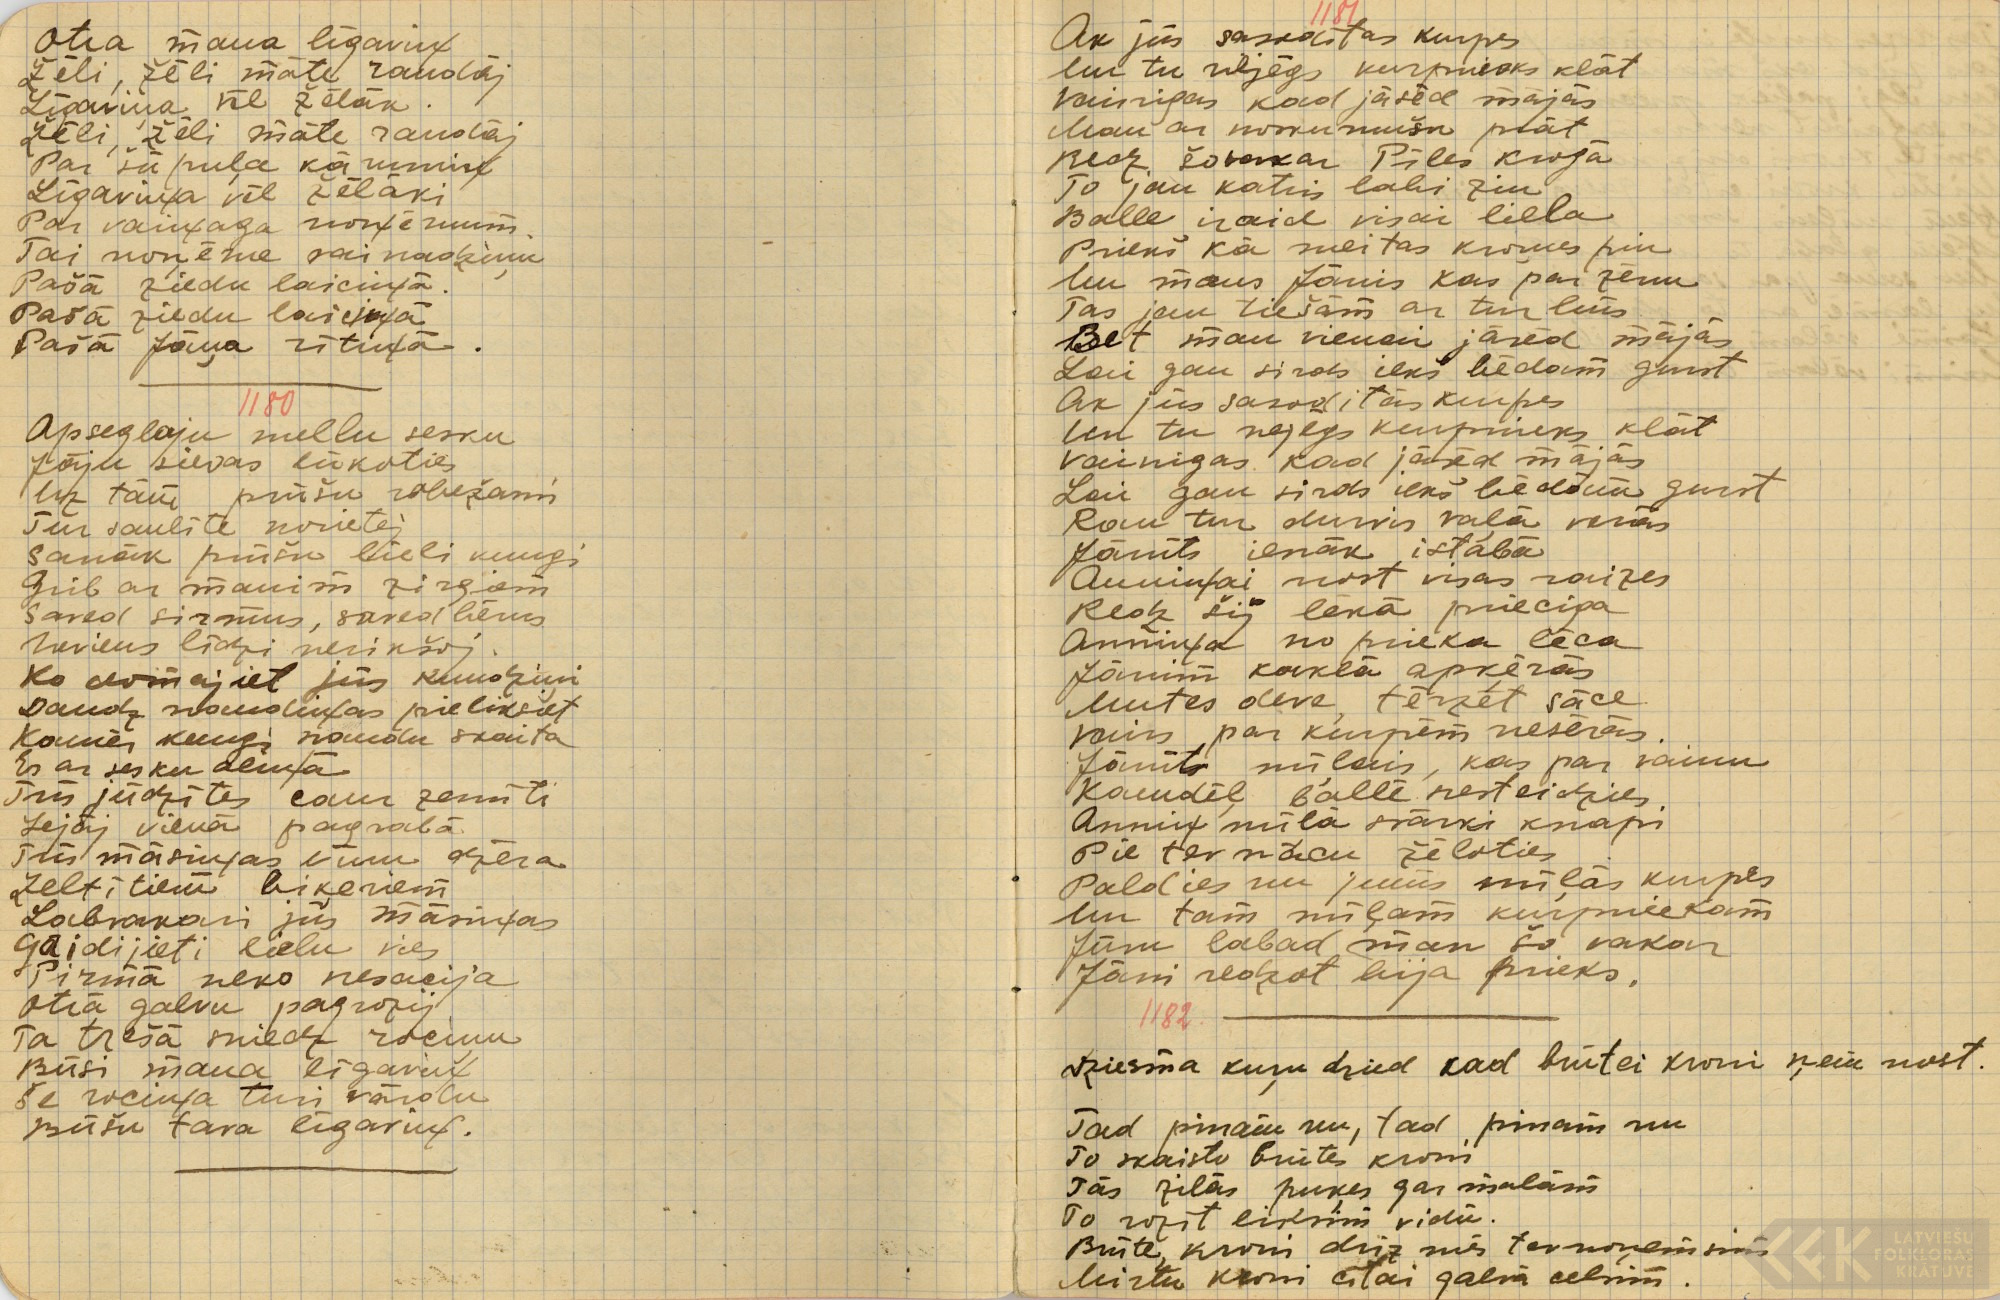 Otra mana līgaviņ
Žēli, žēli māte raudāj
Līgaviņa vēl žēlāk.
Žēli, žēli māte raudāj
Par šūpuļa kārumiņ
Līgaviņa vēl žēlāki
Par vaiņaga noņēmum.
Tai noņēme vainadziņu
Pašā ziedu laiciņā.
Pašā ziedu laiciņā
Pašā Jāņa rītiņā.
1180
Apsegloju mellu sesku
Jāju sievas lūkoties
Uz tām prūšu robežām
Tur saulīte norietēj
Sanāk prūšu lieli kungi
Grib ar manim zirgiem
Saved sirmus, saved bērus
Neviens līdzi nerikšoj.
Ko domājiet jūs kundziņi
Daudz naudiņas pieliksiet
Kamēr kungi naudu skaita
Es ar sesku aliņā
Trīs jūdzītes caur zemīti
Iejāj vienā pagrabā
Trīs māsiņas vīnu dzēra
Zeltītiem biķeriem
Labvakari jūs māsiņas
Gaidijieti lielu vies
Pirmā neko nesacija
Otrā galvu pagrozij
Ta trešā sniedz rociņu
Būsi mana līgaviņ
Še rociņa turi vārdu
Būšu tava līgaviņ.
1181
Ak jūs sasodītas kurpes
Un tu nejēgs kurpnieks klāt
Vainigas kad jāsēd mājās
Man ar noskumušu prāt
Redz šovakar Pīles krogā
To jau katris labi zin
Balle iraid visai liela
Priekš kā meitas kroņus pin
Un mans Jānis kas par zēnu
Tas jau tiešām ar tur būs
Bet man vienai jāsēd mājās
Lai gan sirds iekš bēdām gurst
Ak jūs sasoditās kurpes
Un tu nejēgs kurpnieks klāt
Vainigas kad jāsēd mājās
Lai gan sirds iekš bēdām gurst
Rau tur durvis vaļā verās
Jānīts ienāk istabā
Anniņai nost visas raizes
Redz šij lēkā prieciga
Anniņa no prieka lēca
Jānim kaklā apķērās
Mutes deve, tērzēt sāce
Vairs par kurpēm nesērās.
Jānīts mīlais, kas par vainu
Kamdēļ ballē nesteidzies
Anniņ mīlā svārki knapi
Pie tev nācu žēloties
Paldies nu jums mīļās kurpēs
Un tam mīļam kurpniekam
Jūsu labad man šo vakar
Jāni redzot bija prieks.
1182.
Dziesma kuŗu dzied kad brūtei kroni ņem nost.
Tad pinam nu, tad pinam nu
To skaisto brūtes kroni
Tās zilās puķes gar malām
To rozīt liksim vidū.
Brūte, kroni drīz mēs tev noņemsim
Mirtu kroni citai galvā celsim.
LATVIEŠU
FOLKLORAS
KRĀTUVE